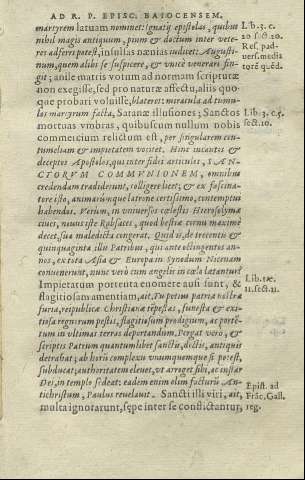 AD R. P. EPISC. BAIOCENSEM.
martyrem latuam nominet: ignatij epistolas, quibus
nihil magis antiquum, pium & doctum inter vete-
res adferri potest, insulsas nænias iudicet: Augusti-
num, quem alibi se suspicere, & vnicè venerari fin-
git; anile matris votum ad normam scripturæ
non exegisse, sed pro naturæ affectu, aliis quo-
que probari voluisse, blateret: miracula ad tumu-
los martyrum facta, Satanæ illusiones; Sanctos
mortuas vmbras, quibuscum nullum nobis
commercium relictum est, per singularem con-
tumeliam & impietatem vocitet. Hinc incantos &
deceptos Apostolos, qui inter fidei articulos, SAN-
CTORVM COMMVNIONEM, omnibus
credendam tradiderunt, colligere licet; & ex fascina-
tore isto, animarúnque latrone certissimo, contemptus
habendus. Verùm, in vniuersos cœlestis Hierosolymæ
ciues, nouus iste Rabsaces, quod bestiæ cornu maximè
decet, sua maledicta congerat. Quid ij, de trecenti &
quinquaginta illi Patribus, qui ante octingentos an-
nos, ex tota Asia & Europa in Synodum Nicenam
conuenerunt, nunc verò cum angelis in cœlo lætantur?
Impietatum portenta enomere ausi sunt, &
flagitiosam amentiam, ait. Tu potiùs patriæ nostræ
furia, reipublicæ Christianæ tēpestas, funesta & exi-
tiosa regnorum pestis, flagitiosum prodigium, ac portē-
tum in vltimas terras deportandum. Pergat verò, &
scriptis Patrum quantumlibet sanctis, doctis, antiquis
detrahat; ab horū complexu vnumquemque si potest,
subducat; authoritatem eleuet, vt arroget sibi, ac instar
Dei, in templo sedeat: eadem enim olim facturū An-
tichristum, Paulus reuelauit. Sancti illi viri, ait,
multa ignorarunt, sępe inter se conflictantur,
Lib. 3. c.
20 sect. 20.
Res. pad
uers. medi
torē quęd.
Lib. 3. c. 5.
sect. 10.
Lib. tæ.
11. sect. 11.
Epist. ad
Frāc. Gall.
reg.